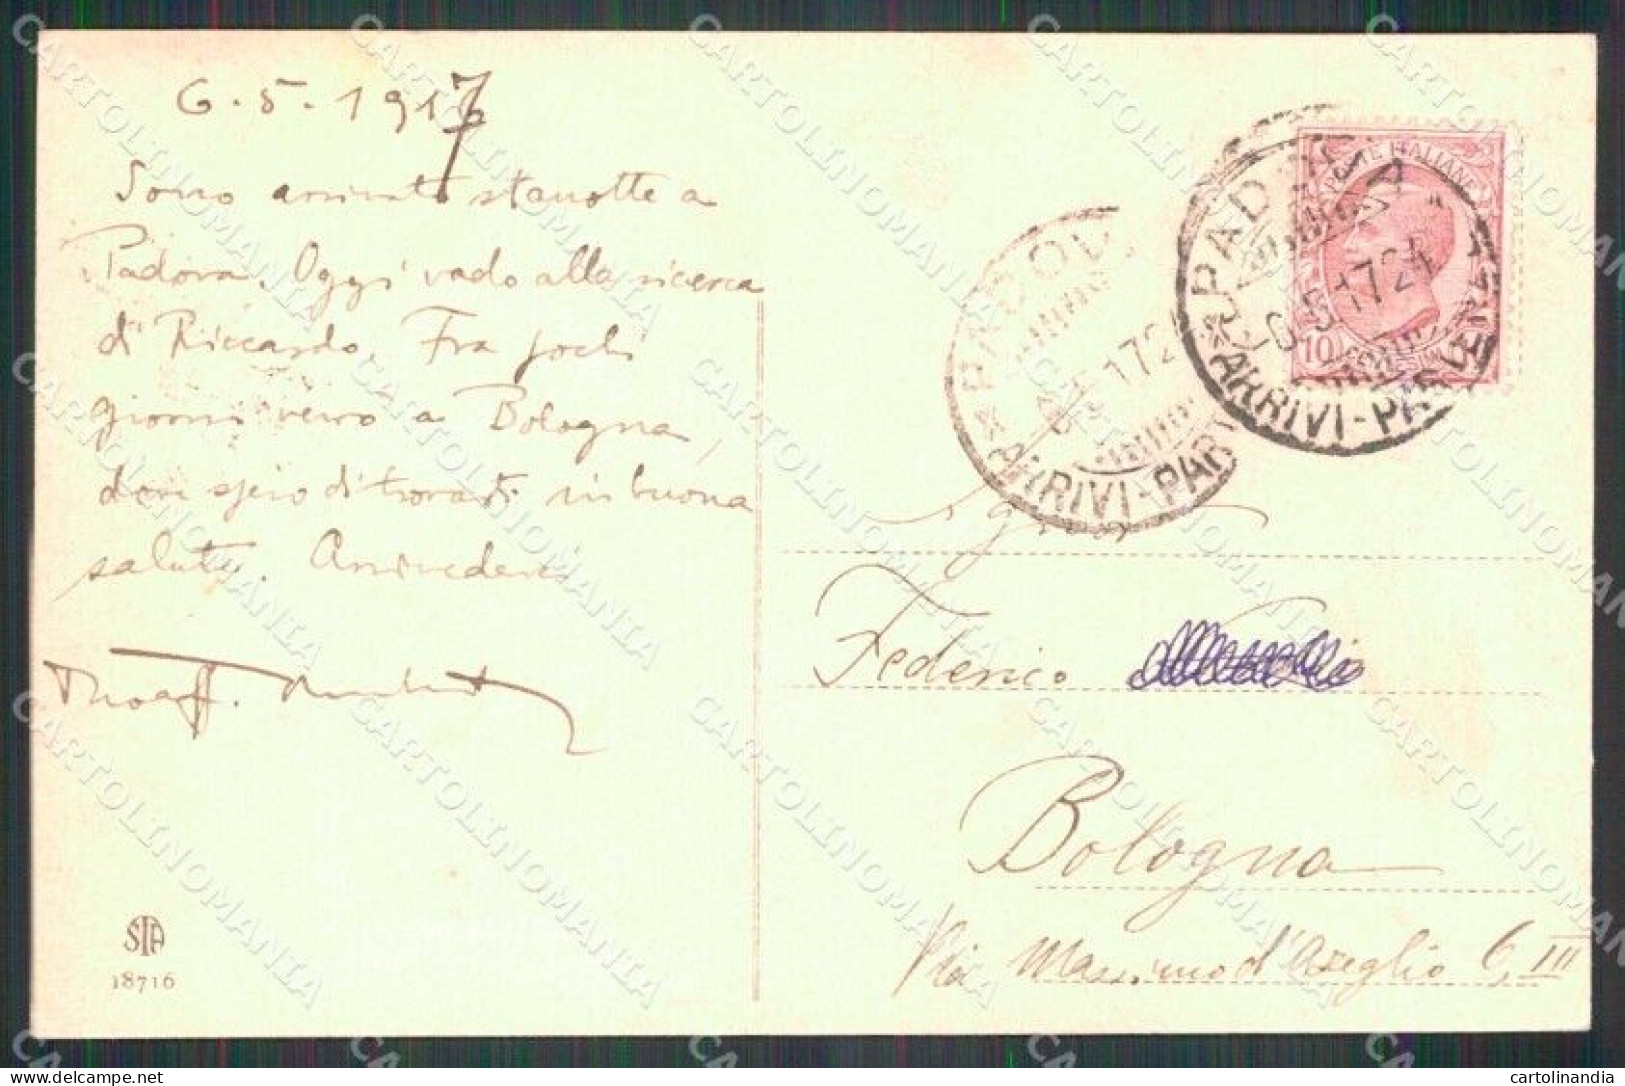 6-5-1917
Sono arrivato stanotte a
Padova. Oggi vado alla ricerca
di Riccardo. Fra pochi
giorni verrò a Bologna,
dove spero di trovarti in buona
salute. Arrivederci
STA
18716
PADOVA
ARRIVI-PAR
5 17 2
PADOVA
ARRIVI-PARTENZA
6 5 17 24
POSTE ITALIANE
10
Federico
Bologna
Via Massimo d'Azeglio 6 III
CARTOLINOMANIA
cartolinandia